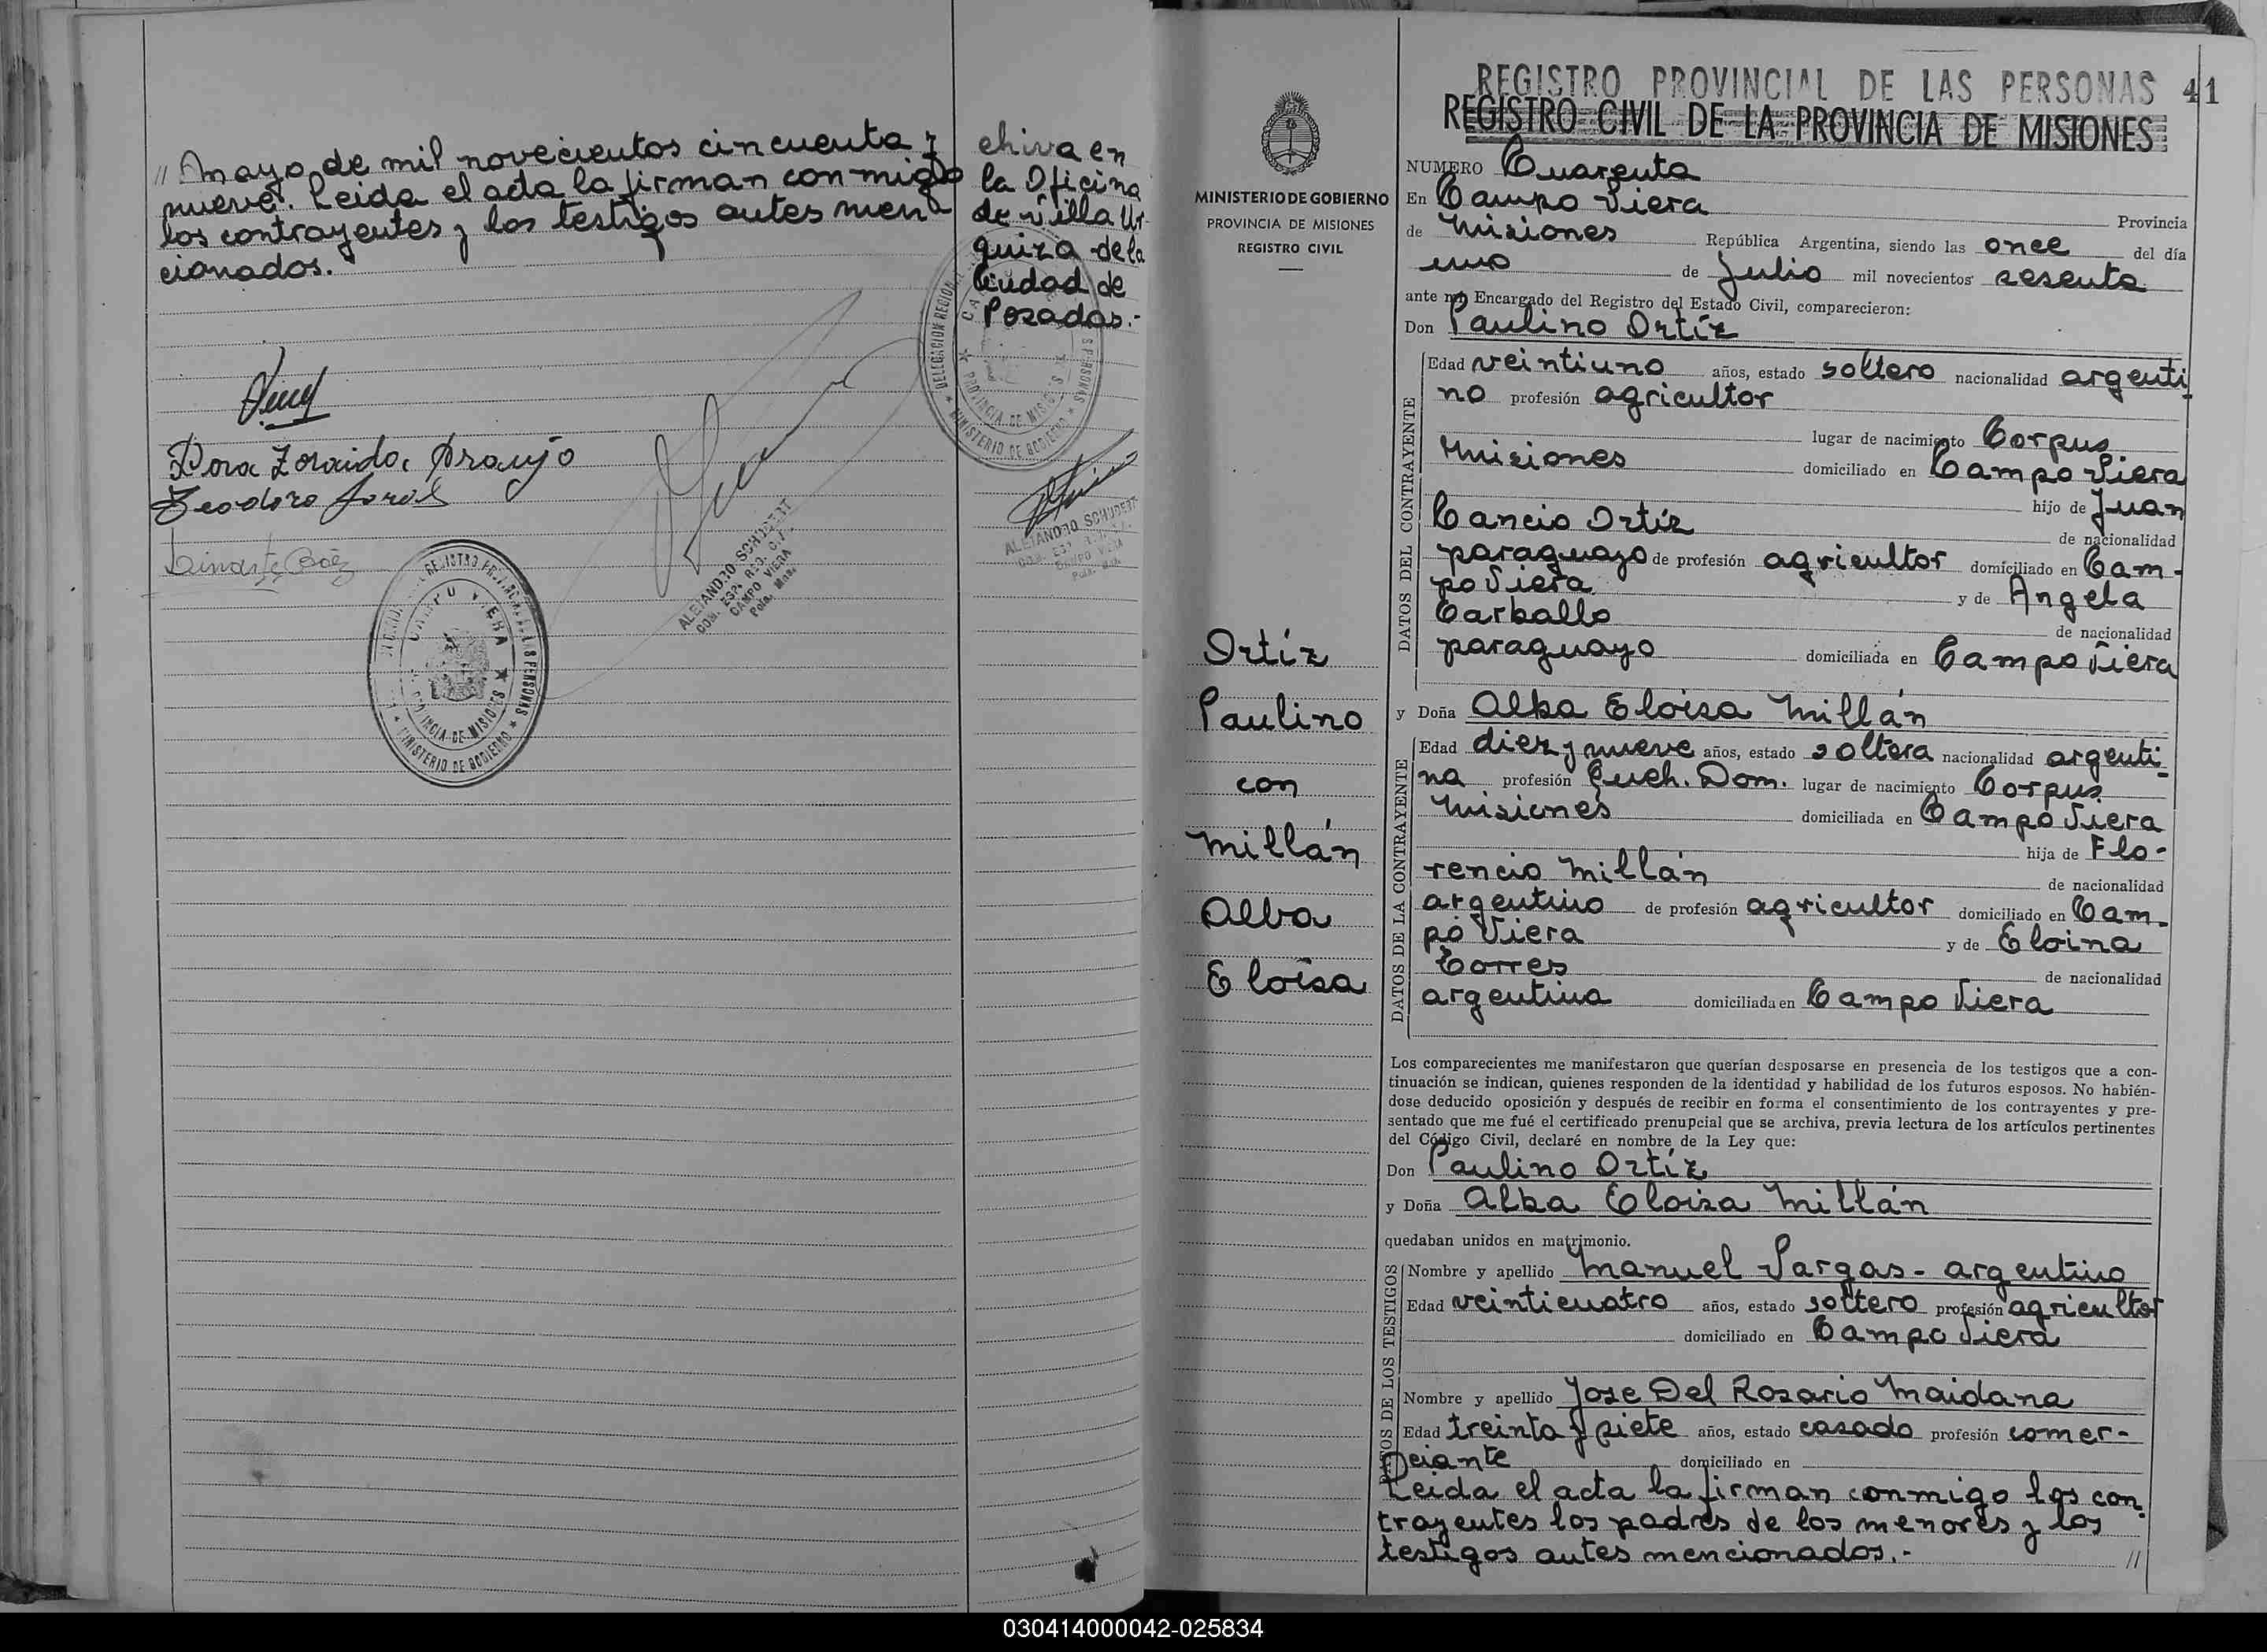 // mayo de mil novecientos cincuenta y
nueve. Leida el acta la firman con migo
los contrayentes y los testigos antes men
cionados.
chiva en
la Oficina
de Villa Ur-
quiza de la
Ciudad de
Posadas.-
Dora Zoraida Araujo
Teodoro
ALEJANDRO SCHUBERT
CAMPO VIERA
Pcia. Mns.
ALEJANDRO SCHUBERT
CAMPO VIERA
Pcia. Mns.
CAMPO VIERA
PROVINCIA DE MISIONES
MINISTERIO DE GOBIERNO
DELEGACION REGIONAL
PROVINCIA DE MISIONES
MINISTERIO DE GOBIERNO
MINISTERIO DE GOBIERNO
PROVINCIA DE MISIONES
REGISTRO CIVIL
Ortíz
Paulino
con
Millán
Alba
Eloisa
REGISTRO PROVINCIAL DE LAS PERSONAS 41
REGISTRO CIVIL DE LA PROVINCIA DE MISIONES
NUMERO Cuarenta
En Campo Viera Provincia
de Misiones República Argentina, siendo las once del día
uno de Julio mil novecientos sesenta
ante mí Encargado del Registro del Estado Civil, comparecieron:
Don Paulino Ortíz
DATOS DEL CONTRAYENTE
Edad veintiuno años, estado soltero nacionalidad argenti
no profesión agricultor
lugar de nacimiento Corpus
Misiones domiciliado en Campo Viera
hijo de Juan
Cancio Ortíz de nacionalidad
paraguayo de profesión agricultor domiciliado en Cam-
po Viera y de Angela
Carballo de nacionalidad
paraguayo domiciliada en Campo Viera
y Doña Alba Eloisa Millán
DATOS DE LA CONTRAYENTE
Edad diez y nueve años, estado soltera nacionalidad argenti
na profesión Queh. Dom. lugar de nacimiento Corpus
Misiones domiciliada en Campo Viera
hija de Flo-
rencio Millán de nacionalidad
argentino de profesión agricultor domiciliado en Cam-
po Viera y de Eloina
Torres de nacionalidad
argentina domiciliada en Campo Viera
Los comparecientes me manifestaron que querían desposarse en presencia de los testigos que a con-
tinuación se indican, quienes responden de la identidad y habilidad de los futuros esposos. No habién-
dose deducido oposición y después de recibir en forma el consentimiento de los contrayentes y pre-
sentado que me fué el certificado prenupcial que se archiva, previa lectura de los artículos pertinentes
del Código Civil, declaré en nombre de la Ley que:
Don Paulino Ortíz
y Doña Alba Eloisa Millán
quedaban unidos en matrimonio.
DATOS DE LOS TESTIGOS
Nombre y apellido Manuel Vargas - argentino
Edad veinticuatro años, estado soltero profesión agricultor
domiciliado en Campo Viera
Nombre y apellido Jose Del Rosario Maidana
Edad treinta y siete años, estado casado profesión comer-
ciante domiciliado en
Leida el acta la firman conmigo los con
trayentes los padres de los menores y los
testigos antes mencionados.- //
030414000042-025834